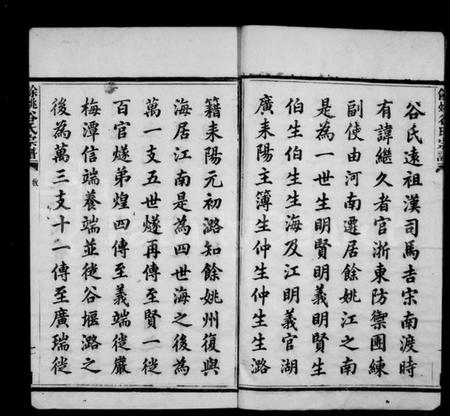 谷氏遠祖漢司馬吉宋南渡時
有諱繼久者官浙東防禦團練
副使由河南遷居餘姚江之南
是為一世生明賢明義明賢生
伯生生生海及江明義官湖
廣耒陽主簿生仲生仲生生潞
籍耒陽元初潞知餘姚州復與
海居江南是為四世海之後為
萬一支五世燧再傳至賢一徙
百官燧弟煌四傳至義端徙嚴
梅潭信端養端並徙谷堰潞之
後為萬三支十一傳至廣瑞徙
餘姚谷氏宗譜
餘姚谷氏宗譜